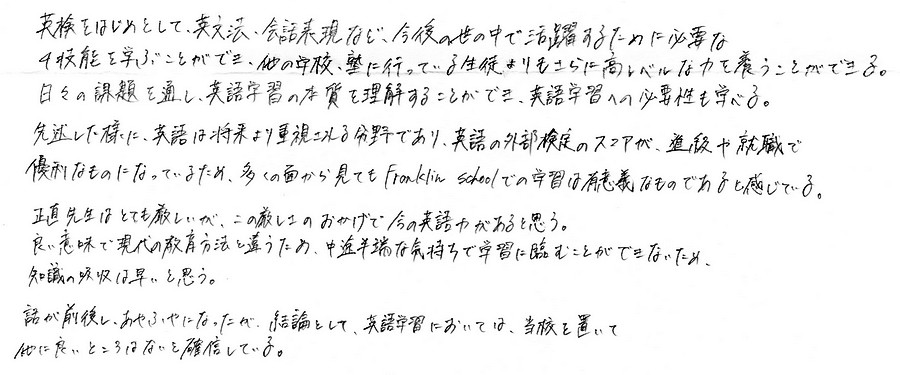 英検をはじめとして、英文法、会話表現など、今後の世の中で活躍するために必要な
4技能を学ぶことができ、他の学校、塾に行っている生徒よりもさらに高レベルな力を養うことができる。
日々の課題を通し、英語学習の本質を理解することができ、英語学習への必要性も学べる。
先述した様に、英語は将来より重視される分野であり、英語の外部検定のスコアが、進級や就職で
優利なものになっているため、多くの面から見てもFranklin schoolでの学習は有意義なものであると感じている。
正直先生はとても厳しいが、この厳しさのおかげで今の英語力があると思う。
良い意味で現代の教育方法と違うため、中途半端な気持ちで学習に臨むことができないため、
知識の吸収は早いと思う。
話が前後し、あやふやになったが、結論として、英語学習においては、当校を置いて
他に良いところはないと確信している。